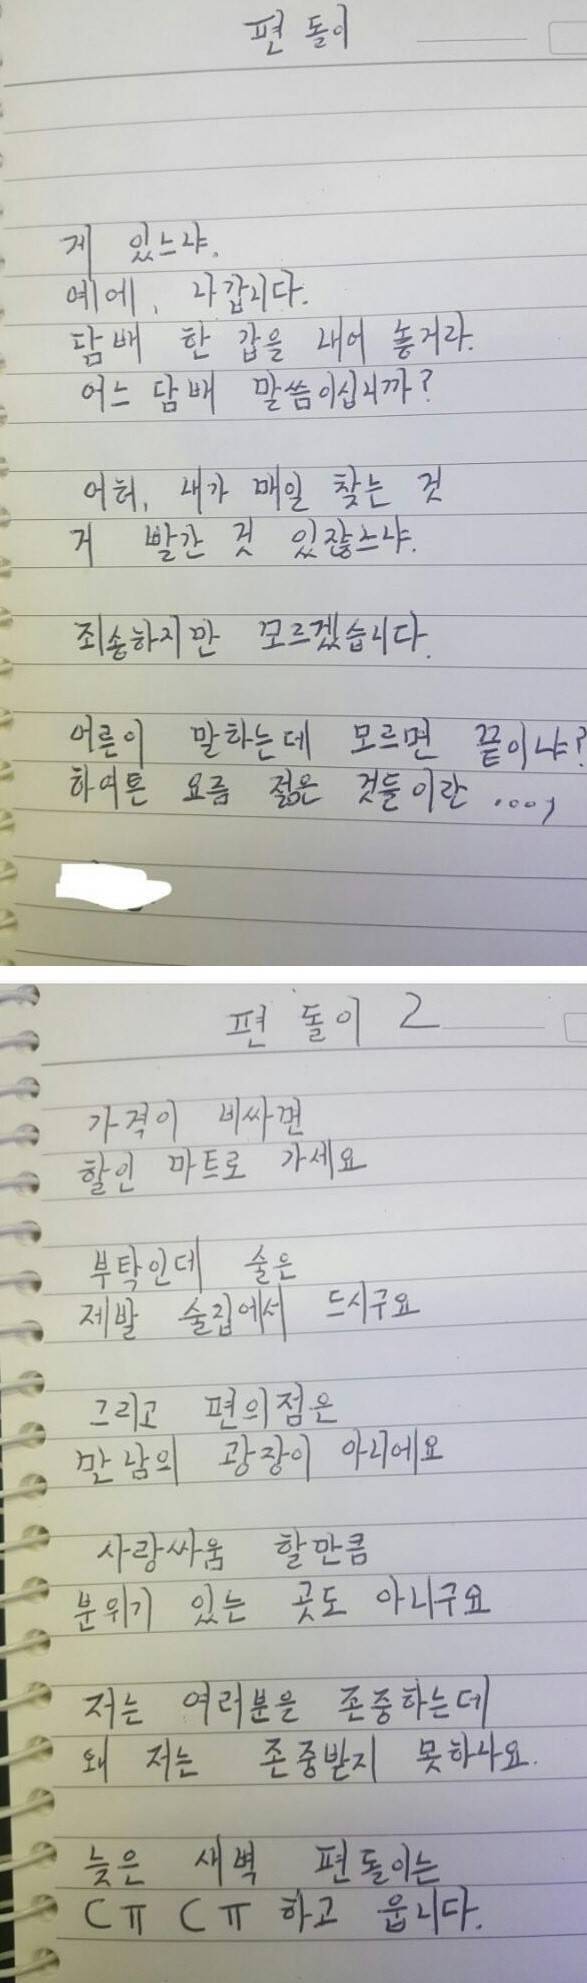 편 돌이
게 있느냐.
예에, 나갑니다.
담배 한 갑을 내어 놓거라.
어느 담배 말씀이십니까?
어허, 내가 매일 찾는 것
거 빨간 것 있잖느냐.
죄송하지만 모르겠습니다.
어른이 말하는데 모르면 끝이냐?
하여튼 요즘 젊은 것들이란 ....,
편 돌이 2
가격이 비싸면
할인 마트로 가세요
부탁인데 술은
제발 술집에서 드시구요
그리고 편의점은
만남의 광장이 아니에요
사랑싸움 할만큼
분위기 있는 곳도 아니구요
저는 여러분을 존중하는데
왜 저는 존중받지 못하나요.
늦은 새벽 편돌이는
ㄷㅠㄷㅠ 하고 웁니다.